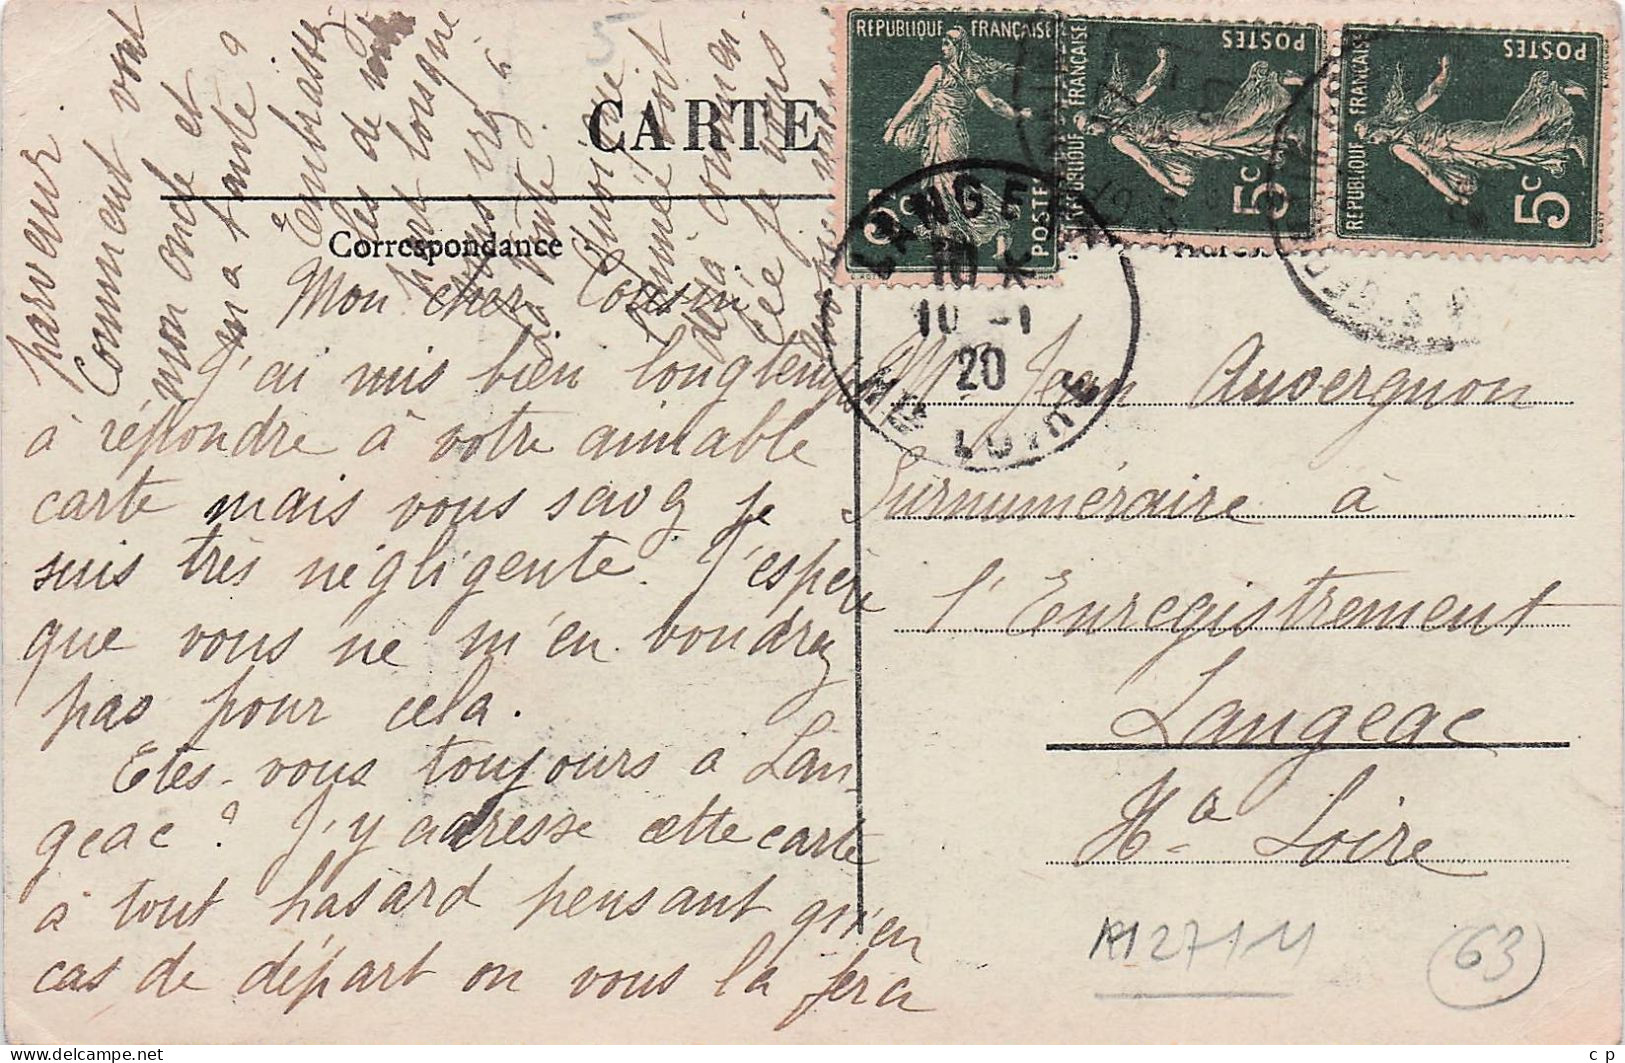 CARTE
Correspondance
Mon cher Cousin
J'ai mis bien longtemps
à répondre à votre aimable
carte mais vous savez je
suis très négligente. J'espère
que vous ne m'en voudrez
pas pour cela.
Etes-vous toujours à Lan-
geac ? J'y adresse cette carte
à tout hasard pensant qu'en
cas de départ on vous la fera
parvenir.
Comment vont
mon oncle et
ma tante ?
Embrassez
les de ma
part lorsque
vous irez
je vous
REPUBLIQUE FRANÇAISE
POSTES
REPUBLIQUE FRANÇAISE
POSTES
5c
REPUBLIQUE FRANÇAISE
POSTES
5c
LANGE
10 *
10 -1
20
LOIRE
Mr Jean Auvergnon
Surnuméraire à
l'Enregistrement
Langeac
Hte Loire
63
c p